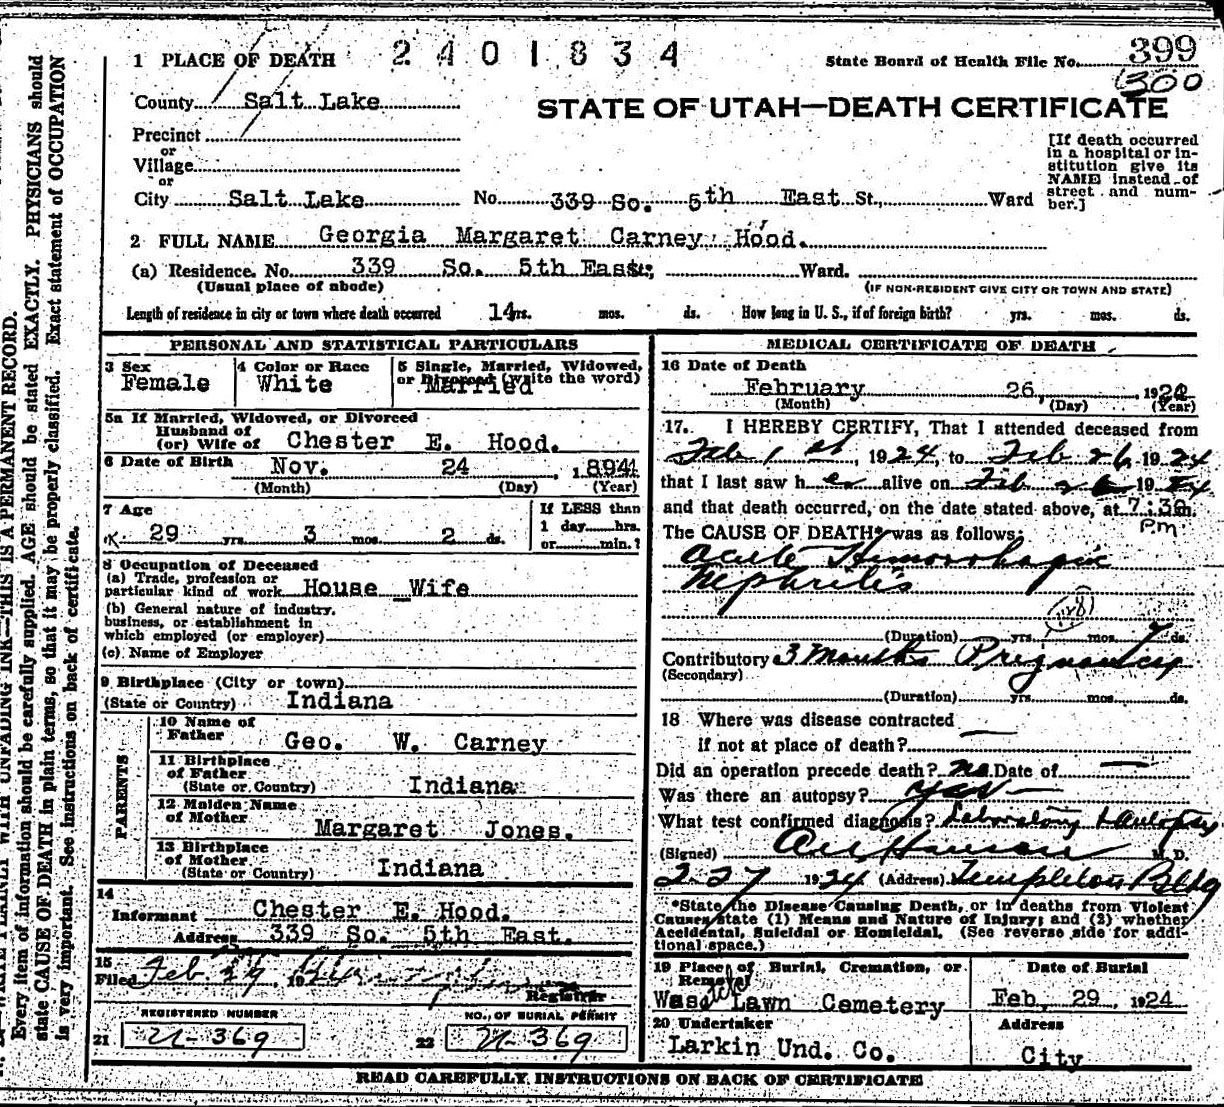 1 PLACE OF DEATH 2401834 State Board of Health File No. 399
300
County Salt Lake STATE OF UTAH—DEATH CERTIFICATE
Precinct
or
Village
or
City Salt Lake No. 339 So. 5th East St., Ward
[If death occurred
in a hospital or in-
stitution give its
NAME instead of
street and num-
ber.]
2 FULL NAME Georgia Margaret Carney Hood.
(a) Residence. No. 339 So. 5th East St., Ward.
(Usual place of abode) (IF NON-RESIDENT GIVE CITY OR TOWN AND STATE)
Length of residence in city or town where death occurred 14 yrs. mos. ds. How long in U. S., if of foreign birth? yrs. mos. ds.
PERSONAL AND STATISTICAL PARTICULARS
3 Sex Female
4 Color or Race White
5 Single, Married, Widowed,
or Divorced (write the word)
Married
5a If Married, Widowed, or Divorced
Husband of
(or) Wife of Chester E. Hood.
6 Date of Birth Nov. 24 1894
(Month) (Day) (Year)
7 Age
29 yrs. 3 mos. 2 ds.
If LESS than
1 day hrs.
or min.?
8 Occupation of Deceased
(a) Trade, profession or
particular kind of work House Wife
(b) General nature of industry,
business, or establishment in
which employed (or employer)
(c) Name of Employer
9 Birthplace (City or town)
(State or Country) Indiana
PARENTS
10 Name of
Father Geo. W. Carney
11 Birthplace
of Father
(State or Country) Indiana
12 Maiden Name
of Mother
Margaret Jones.
13 Birthplace
of Mother
(State or Country) Indiana
14
Informant Chester E. Hood.
Address 339 So. 5th East.
15
Filed Feb 29, 192
Registrar
REGISTERED NUMBER NO. OF BURIAL PERMIT
21 369 22 369
MEDICAL CERTIFICATE OF DEATH
16 Date of Death
February 26, 192
(Month) (Day) (Year)
17. I HEREBY CERTIFY, That I attended deceased from
Feb 1st, 1924, to Feb 26 1924
that I last saw her alive on Feb 26 1924
and that death occurred, on the date stated above, at 7:30 m.
Pm
The CAUSE OF DEATH* was as follows:
Acute Hemorrhagic
Nephritis
(128)
(Duration) yrs. mos. 7 ds.
Contributory 3 Months Pregnancy
(Secondary)
(Duration) yrs. mos. ds.
18 Where was disease contracted
if not at place of death?
Did an operation precede death? no Date of
Was there an autopsy? yes
What test confirmed diagnosis? Laboratory & Autopsy
(Signed) M. D.
2-27 1924 (Address) Templeton Bldg
*State the Disease Causing Death, or in deaths from Violent
Causes state (1) Means and Nature of Injury; and (2) whether
Accidental, Suicidal or Homicidal. (See reverse side for addi-
tional space.)
19 Place of Burial, Cremation, or
Removal
Wasatch Lawn Cemetery
Date of Burial
Feb, 29, 1924
20 Undertaker
Larkin Und. Co.
Address
City
READ CAREFULLY INSTRUCTIONS ON BACK OF CERTIFICATE
WRITE PLAINLY WITH UNFADING INK—THIS IS A PERMANENT RECORD.
Every item of information should be carefully supplied. AGE should be stated EXACTLY. PHYSICIANS should
state CAUSE OF DEATH in plain terms, so that it may be properly classified. Exact statement of OCCUPATION
is very important. See instructions on back of certificate.